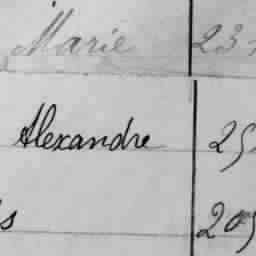 Marie 23
Alexandre 25
s 205